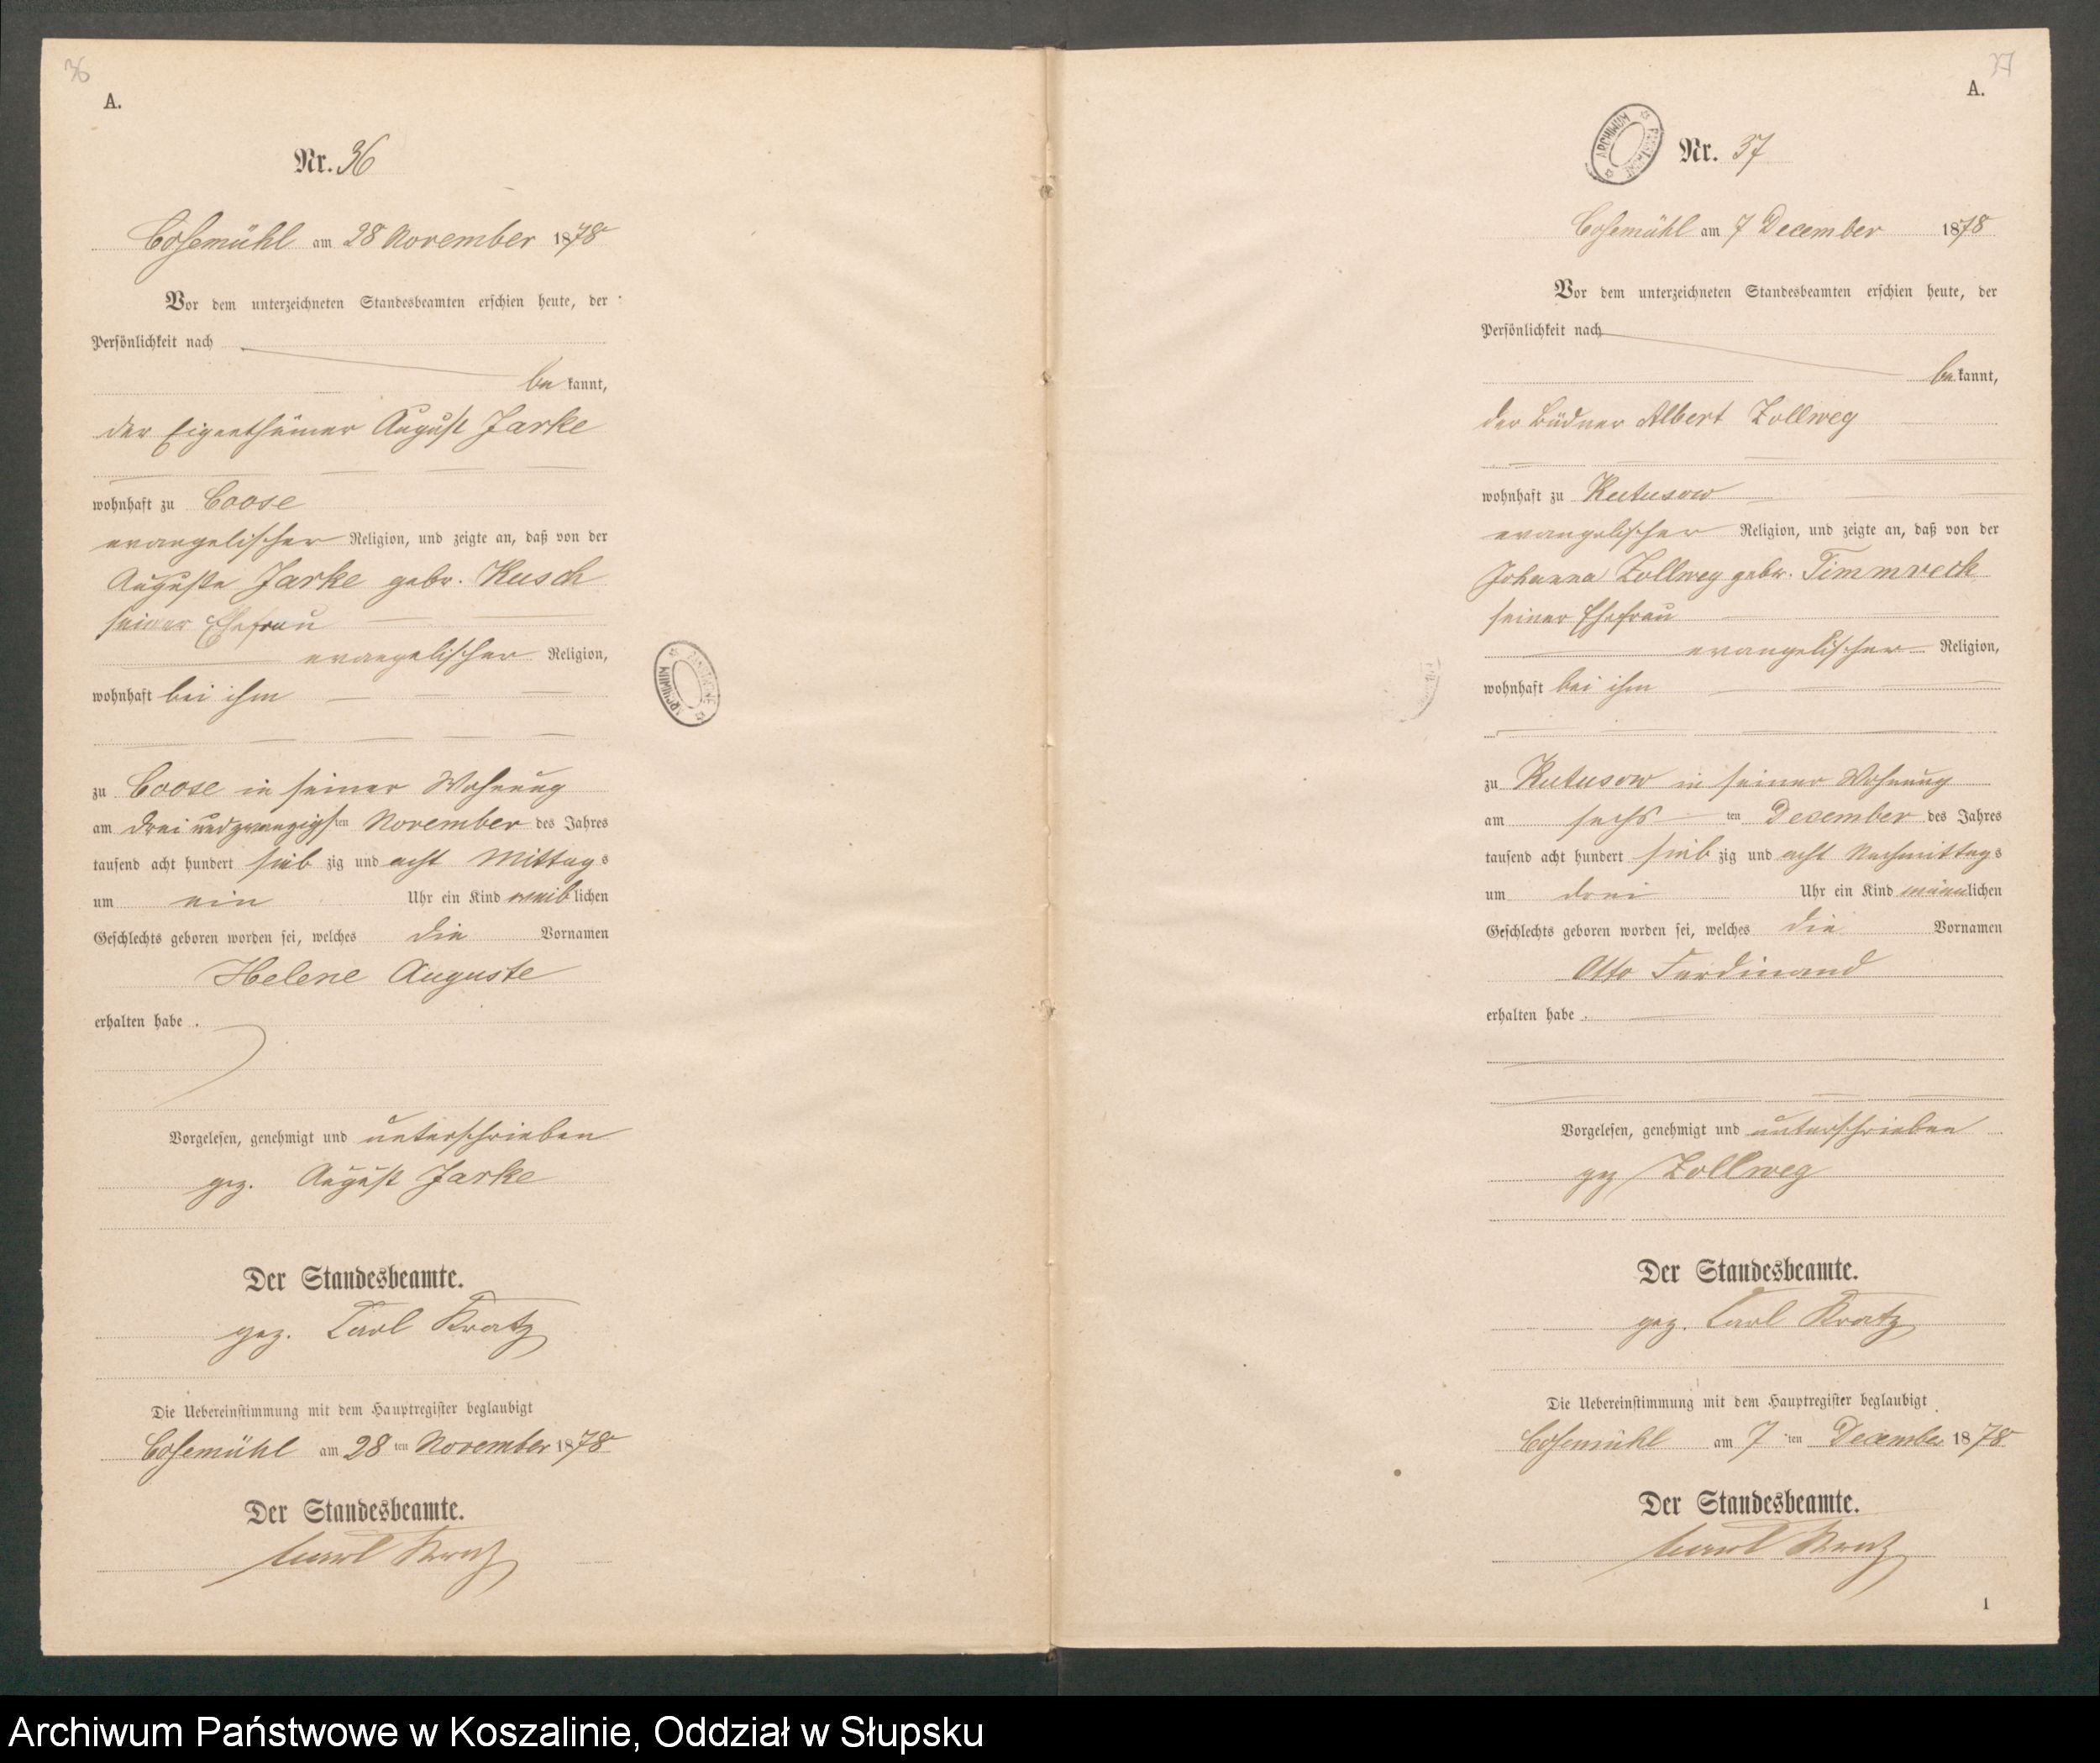 36
A.
Nr. 36
Cosemühl am 28 November 1878
Vor dem unterzeichneten Standesbeamten erschien heute, der
Persönlichkeit nach
be kannt,
der Eigenthümer August Jarke
wohnhaft zu Coose
evangelischer Religion, und zeigte an, daß von der
Auguste Jarke gebr. Kusch
seiner Ehefrau
evangelischer Religion,
wohnhaft bei ihm
zu Coose in seiner Wohnung
am drei und zwanzigsten November des Jahres
tausend acht hundert sieb zig und acht Mittags
um ein Uhr ein Kind weiblichen
Geschlechts geboren worden sei, welches die Vornamen
Helene Auguste
erhalten habe .
Vorgelesen, genehmigt und unterschrieben
gez. August Jarke
Der Standesbeamte.
gez. Carl Kratz
Die Uebereinstimmung mit dem Hauptregister beglaubigt
Cosemühl am 28 ten November 1878
Der Standesbeamte.
Carl Kratz
37
A.
ARCHIWUM
Nr. 37
Cosemühl am 7 December 1878
Vor dem unterzeichneten Standesbeamten erschien heute, der
Persönlichkeit nach
be kannt,
der Büdner Albert Zollweg
wohnhaft zu Kutusow
evangelischer Religion, und zeigte an, daß von der
Johanna Zollweg gebr. Timmreck
seiner Ehefrau
evangelischer Religion,
wohnhaft bei ihm
zu Kutusow in seiner Wohnung
am sechs ten December des Jahres
tausend acht hundert sieb zig und acht Nachmittags
um drei Uhr ein Kind männlichen
Geschlechts geboren worden sei, welches die Vornamen
Otto Ferdinand
erhalten habe .
Vorgelesen, genehmigt und unterschrieben
gez Zollweg
Der Standesbeamte.
gez. Carl Kratz
Die Uebereinstimmung mit dem Hauptregister beglaubigt
Cosemühl am 7 ten December 1878
Der Standesbeamte.
Carl Kratz
1
ARCHIWUM
Archiwum Państwowe w Koszalinie, Oddział w Słupsku